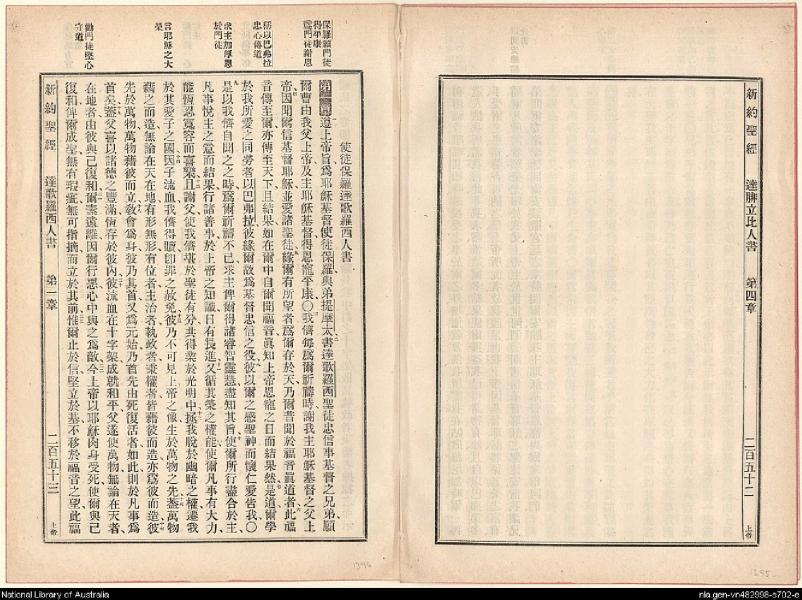 新約聖經 達腓立比人書 第四章 二百五十二 上帝
保羅願門徒得平康
爲門徒謝恩
使徒保羅達歌羅西人書
第一章 遵上帝旨爲耶穌基督使徒保羅與弟提摩太書達歌羅西聖徒忠信事基督之兄弟願
爾曹由我父上帝及主耶穌基督得恩寵平康〇我儕每爲爾祈禱時謝我主耶穌基督之父上
帝因聞爾信基督耶穌並愛諸聖徒緣爾有所望者爲爾存於天乃爾昔聞於福音眞道者此福
音傳至爾亦傳至天下且結果如在爾中自爾聞福音眞知上帝恩寵之日而結果然是道爾學
於我所愛之同勞者以巴弗拉彼緣爾故爲基督忠信之役彼以爾之感聖神而懷仁愛告我〇
是以我儕自聞之之時爲爾祈禱不已求主俾爾得諸睿智靈慧盡知其旨使爾所行盡合於主
凡事悅主之意而結果行諸善事於上帝之知識日有長進又循其榮之權能使爾凡事有大力
能恆忍寬容而喜樂且謝父使我儕堪於聖徒有分共得業於光明中拯我脫於幽暗之權遷我
於其愛子之國因子流血我儕得贖卽罪之赦免彼乃不可見上帝之像生於萬物之先蓋萬物
藉之而造無論在天在地有形無形有位者主治者執政者秉權者皆藉彼而造亦爲彼而造彼
先於萬物萬物藉彼而立敎會爲身彼乃其首又爲元始乃首先由死復活者如此則於凡事爲
首矣蓋父喜以諸德之豐滿恆存於彼內彼流血在十字架成就和平父遂使萬物無論在天者
在地者由彼與己復和爾素遠離因爾行惡心中與之爲敵今上帝以耶穌肉身受死使爾與己
復和俾爾成聖無有瑕疵無可指摘而立於其前惟爾止於信堅立於基不移於福音之望此福
新約聖經 達歌羅西人書 第一章 二百五十三 上帝
述以巴弗拉忠心傳道
求主加厚恩於門徒
言耶穌之大榮
勸門徒堅心守道
1296
1295
National Library of Australia
nla.gen-vn482998-s702-e